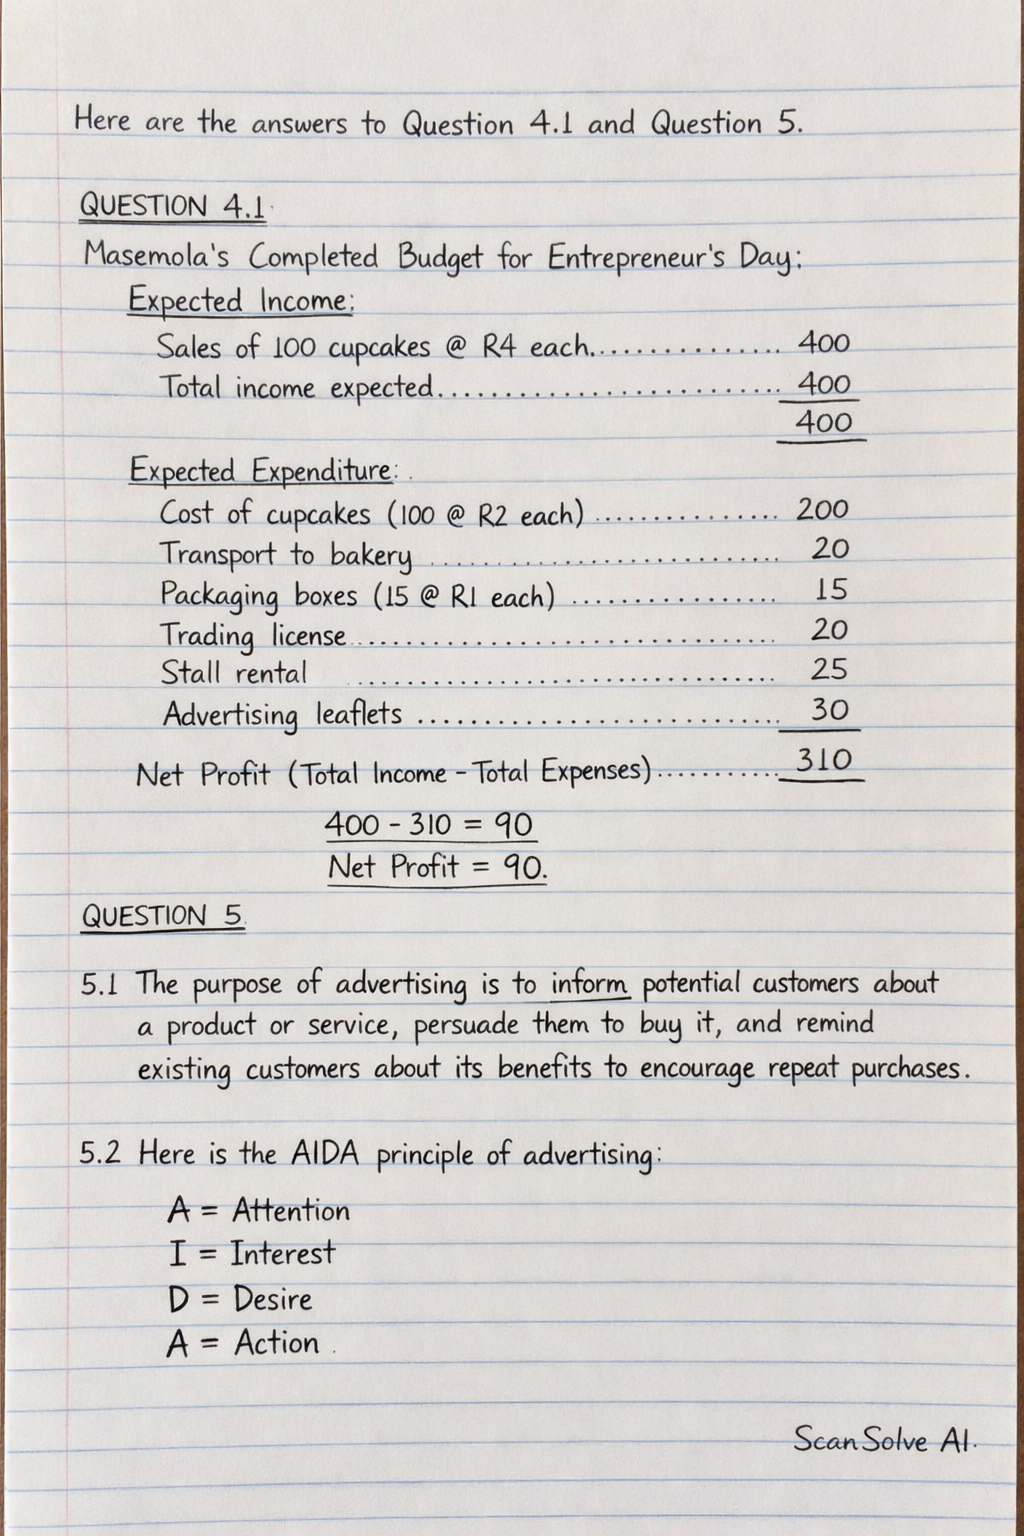 Here are the answers to Question 4.1 and Question 5.
QUESTION 4.1
Masemola's Completed Budget for Entrepreneur's Day:
Expected Income:
Sales of 100 cupcakes @ R4 each................ 400
Total income expected.......................... 400
400
Expected Expenditure:
Cost of cupcakes (100 @ R2 each) .............. 200
Transport to bakery ........................... 20
Packaging boxes (15 @ R1 each) ................ 15
Trading license................................ 20
Stall rental ................................ 25
Advertising leaflets ............................ 30
Net Profit (Total Income - Total Expenses).......... 310
400 - 310 = 90
Net Profit = 90.
QUESTION 5.
5.1 The purpose of advertising is to inform potential customers about
a product or service, persuade them to buy it, and remind
existing customers about its benefits to encourage repeat purchases.
5.2 Here is the AIDA principle of advertising:
A = Attention
I = Interest
D = Desire
A = Action .
ScanSolve AI.